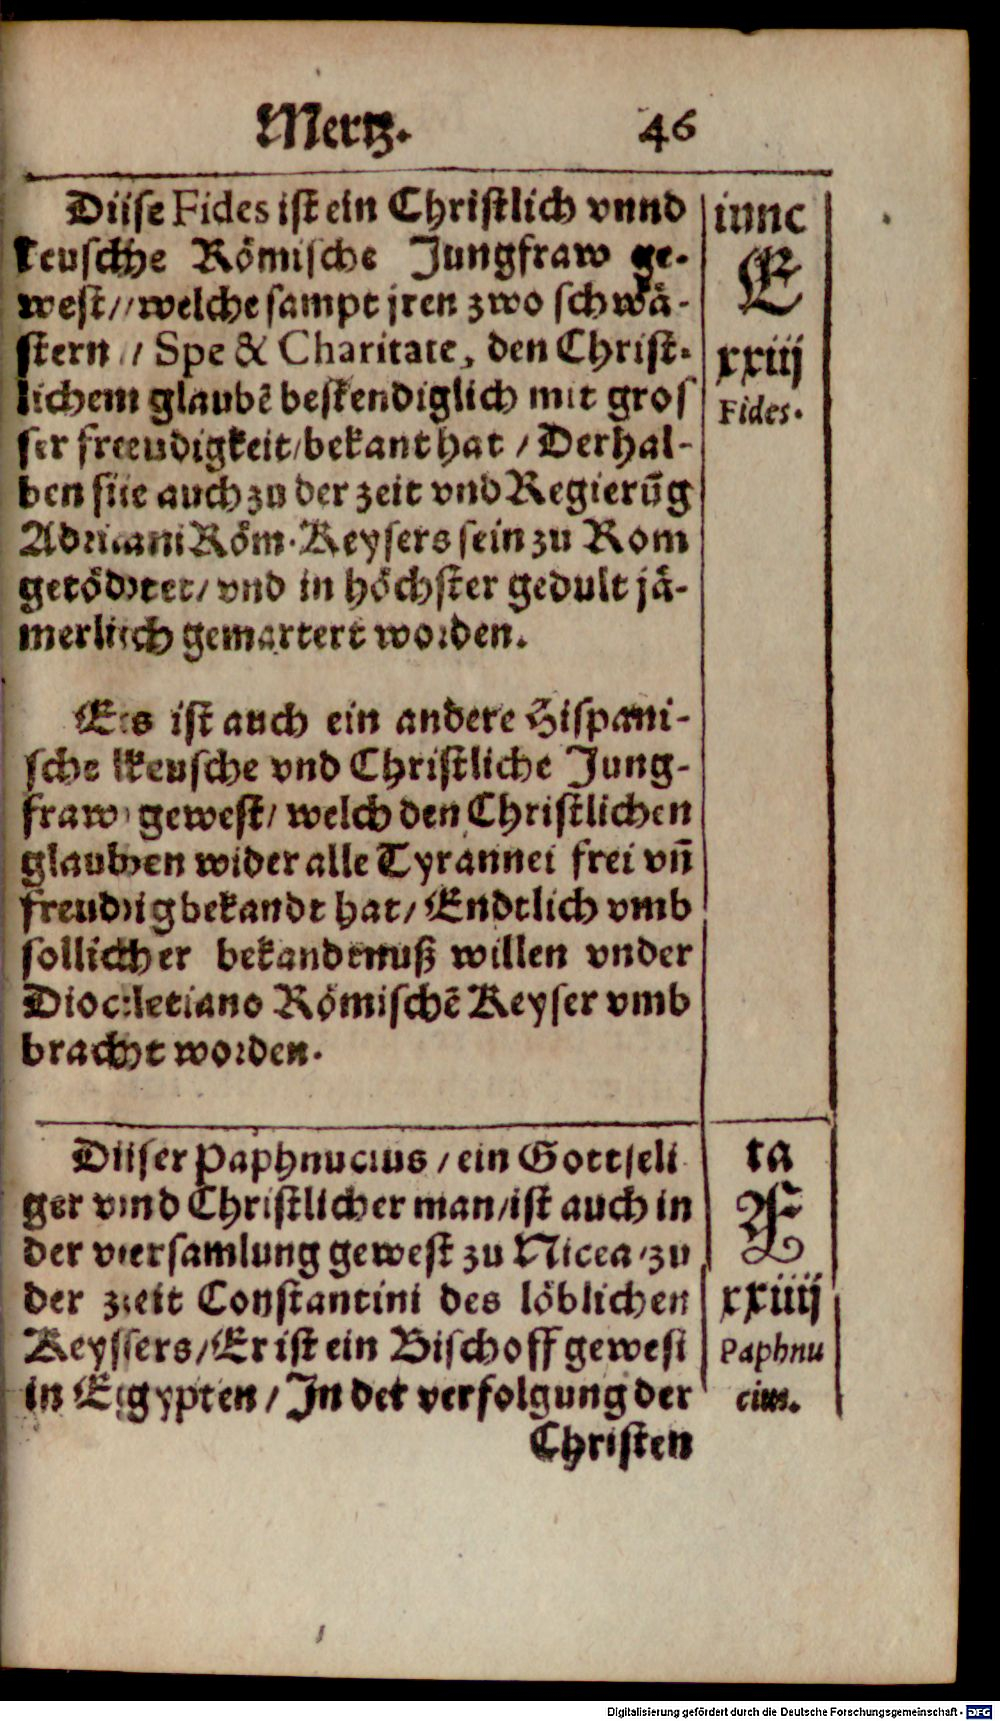 Mertz. 46
Diise Fides ist ein Christlich vnnd
keuschhe Römische Jungfraw ge-
west// welche sampt jren zwo schwä-
stern / Spe & Charitate, den Christ-
lichem glaubē bestendiglich mit gros
ser freeudigkeit/ bekant hat / Derhal-
ben siie auch zu der zeit vnd Regierūg
Adriiani Röm. Keysers sein zu Rom
getödtet/ vnd in höchster gedult jä-
merliich gemartert worden.
Es ist auch ein andere Hispani-
sche keusche vnd Christliche Jung-
fraw gewest/ welch den Christlichen
glauben wider alle Tyrannei frei vñ
freudig bekandt hat/ Endtlich vmb
sollicher bekandtnuß willen vnder
Diocletiano Römischē Keyser vmb
bracht worden.
Diiser Paphnucius / ein Gottseli
ger vnnd Christlicher man/ ist auch in
der versamlung gewest zu Nicea/ zu
der zeit Constantini des löblichen
Keyssers/ Er ist ein Bischoff gewest
in Egypten / In det verfolgung der
Christen
iunc
E
xxiij
Fides.
ta
F
xxiiij
Paphnu
cius.
Digitalisierung gefördert durch die Deutsche Forschungsgemeinschaft - DFG